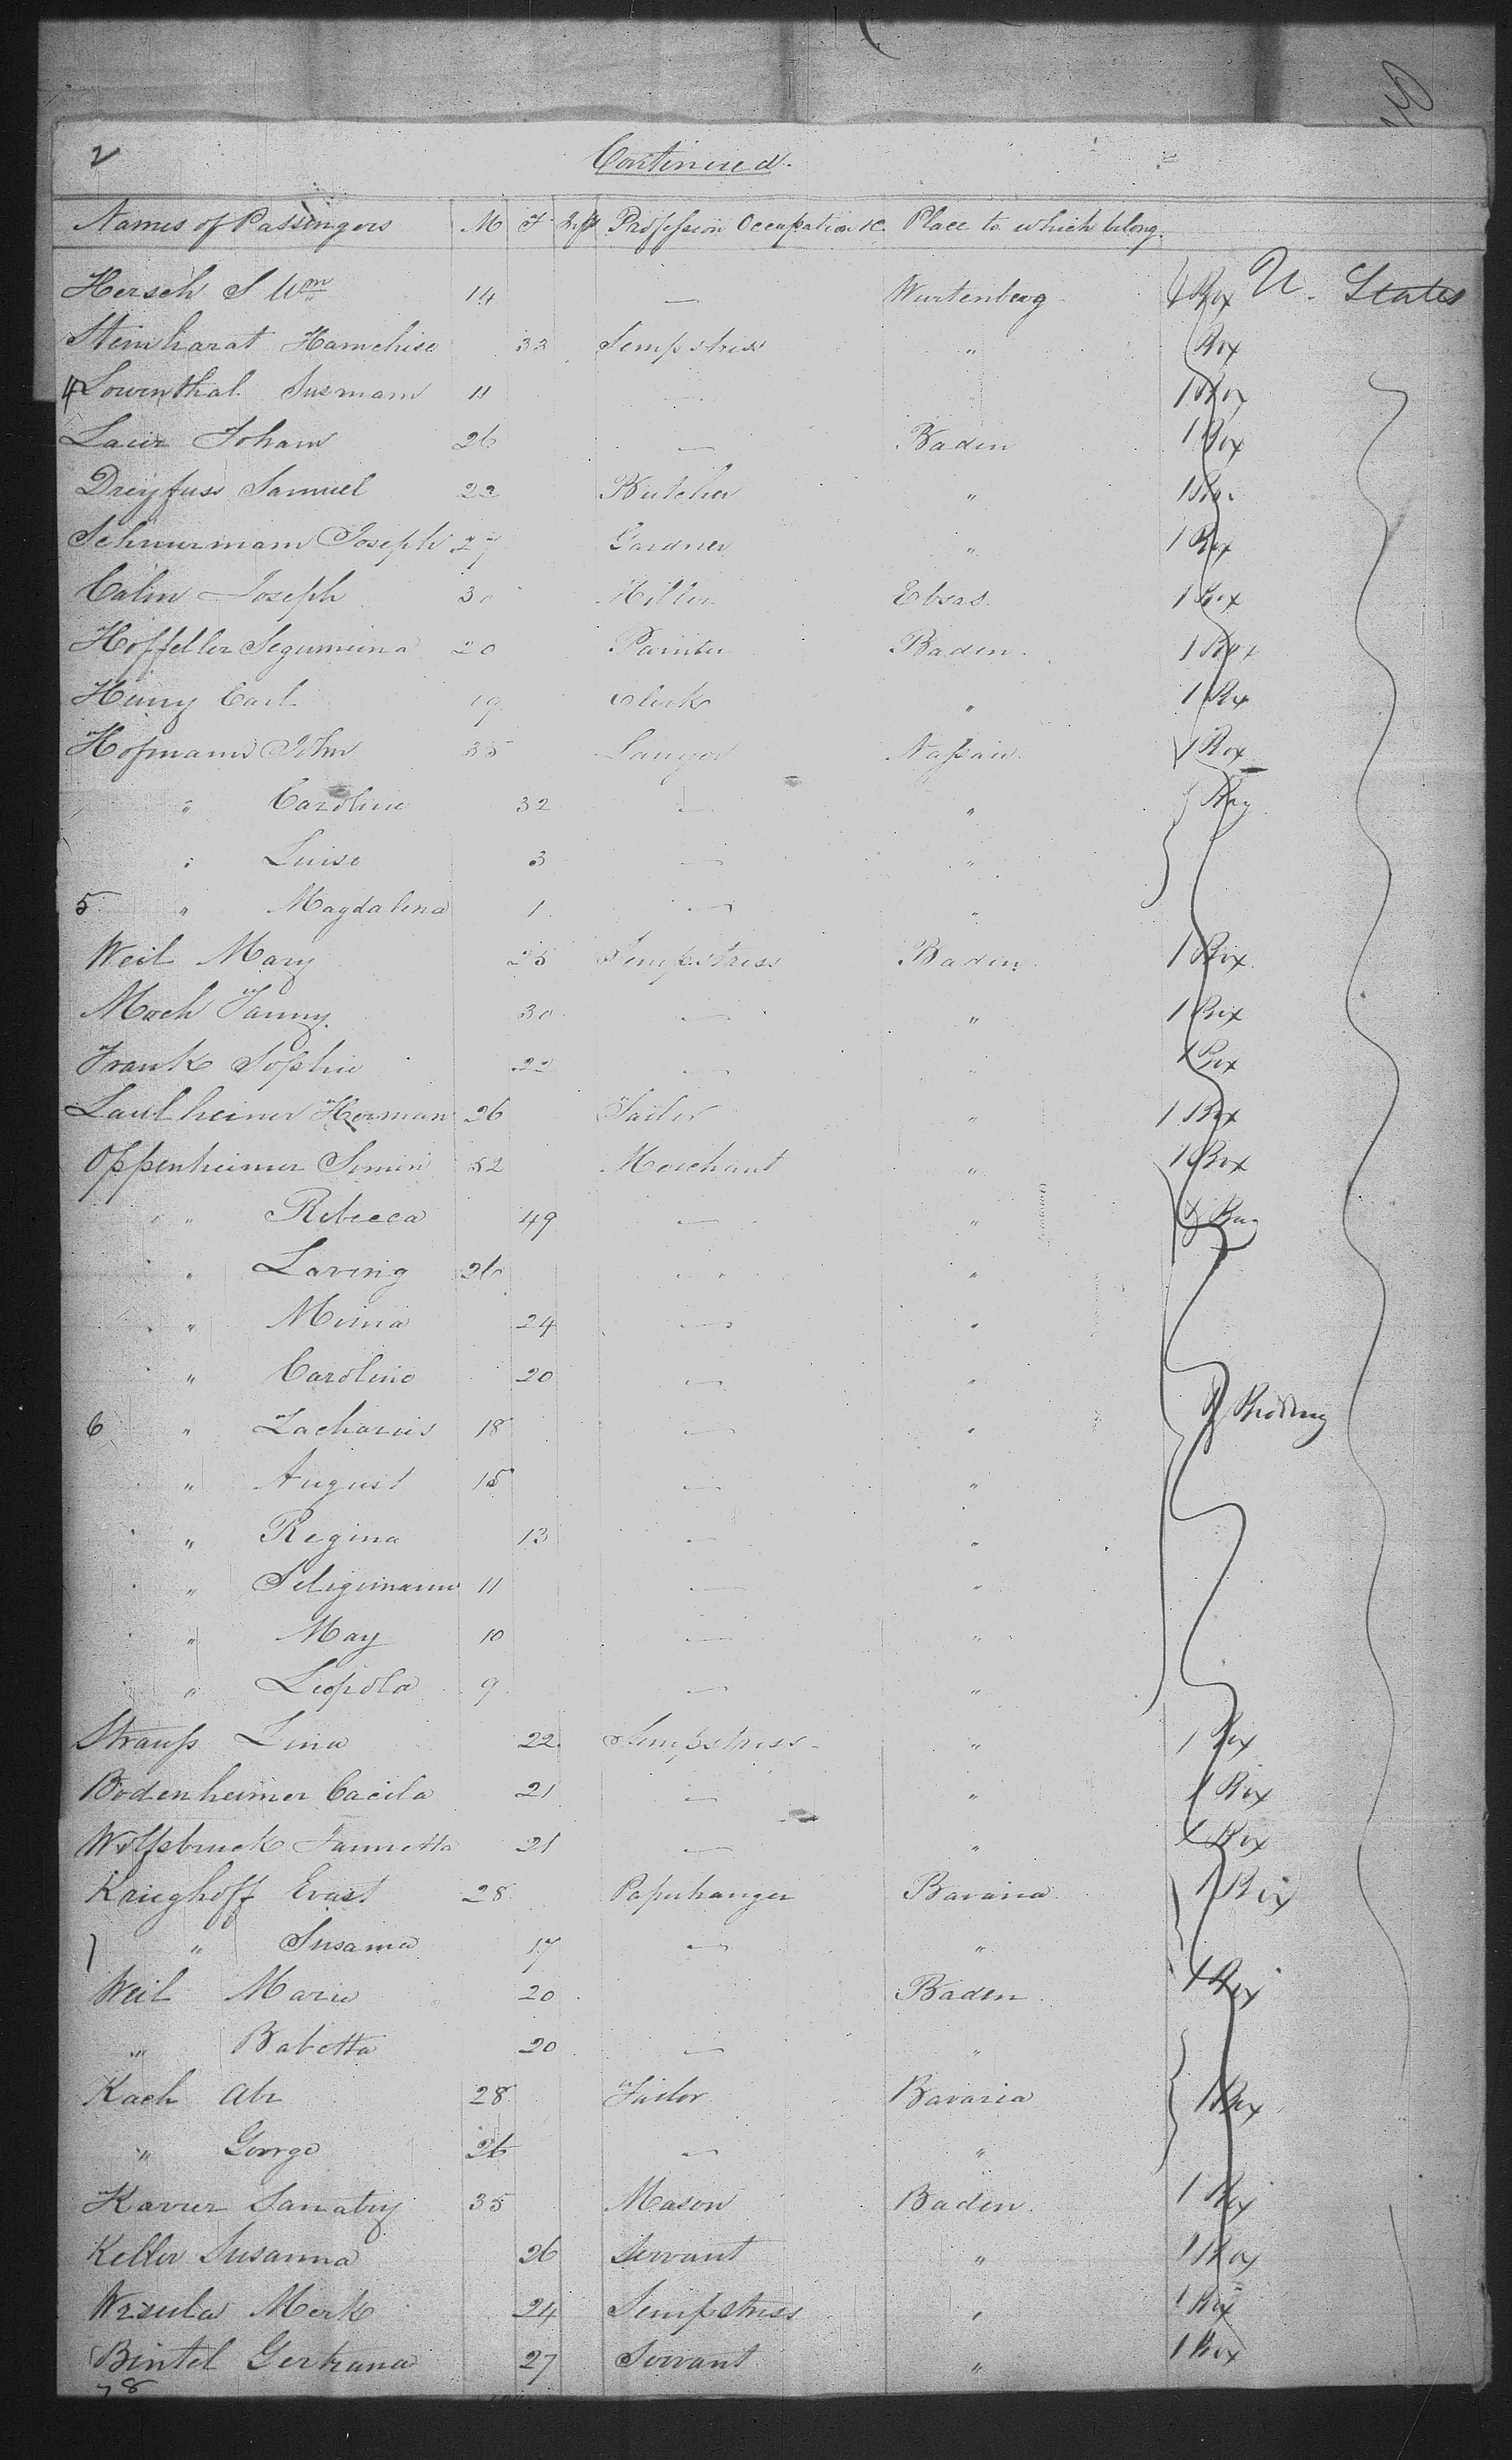 2 Continued.
Names of Passingers M F Inft Profession Occupation &c. Place to which belong.
Hersch S Wm 14 — Wurtenberg 1 Box U. States
Steinharat Hanchise 33 Sempstress " Box
4 Lowenthal Susmann 11 1 Box
Laur Johann 26 — Baden 1 Box
Dreyfuss Samuel 22 Butcher " 1 Box
Schnurmann Joseph 27 Gardner " 1 Box
Cahn Joseph 30 Miller Elsas. 1 Box
Hoffeller Segumuna 20 Painter Baden. 1 Box
Henry Carl 19 Clerk " 1 Bx
Hofmann John 35 Lawyer Nassau. 1 Box
" Caroline 32 — " Bag
" Luise 3 — "
5 " Magdalena 1 — "
Weil Mary 25 Sempstress Baden 1 Box
Moch Fanny 30 — " 1 Box
Frank Sophie 22 — " 1 Box
Laulheimer Herman 26 Tailor " 1 Box
Oppenheimer Simin 52 Merchant " 1 Box
" Rebecca 49 — " Bag
" Laving 26 — "
" Mina 24 — "
" Caroline 20 — "
6 " Zacharis 18 — " Bedding
" August 15 — "
" Regina 13 — "
" Seligmann 11 — "
" May 10 — "
" Leopold 9 — "
Strauss Lina 22 Sempstress "
1 Box
Bodenheimer Cacila 21 — " 1 Box
Wolfsbruck Jannetta 21 — " 1 Box
Krieghoff Evast 28 Paperhanger Bavaria 1 Box
7 " Susanna 17 — "
Weil Marie 20 Baden 1 Box
" Babetta 20 — "
Kach Abr 28 Tailor Bavaria 1 Box
" George 26 — "
Kavier Sanatry 35 Mason Baden. 1 Box
Keller Susanna 26 Servant " 1 Box
Wrzula Merk 24 Sempstress " 1 Box
Bintel Gertrana 27 Servant " 1 Box
78